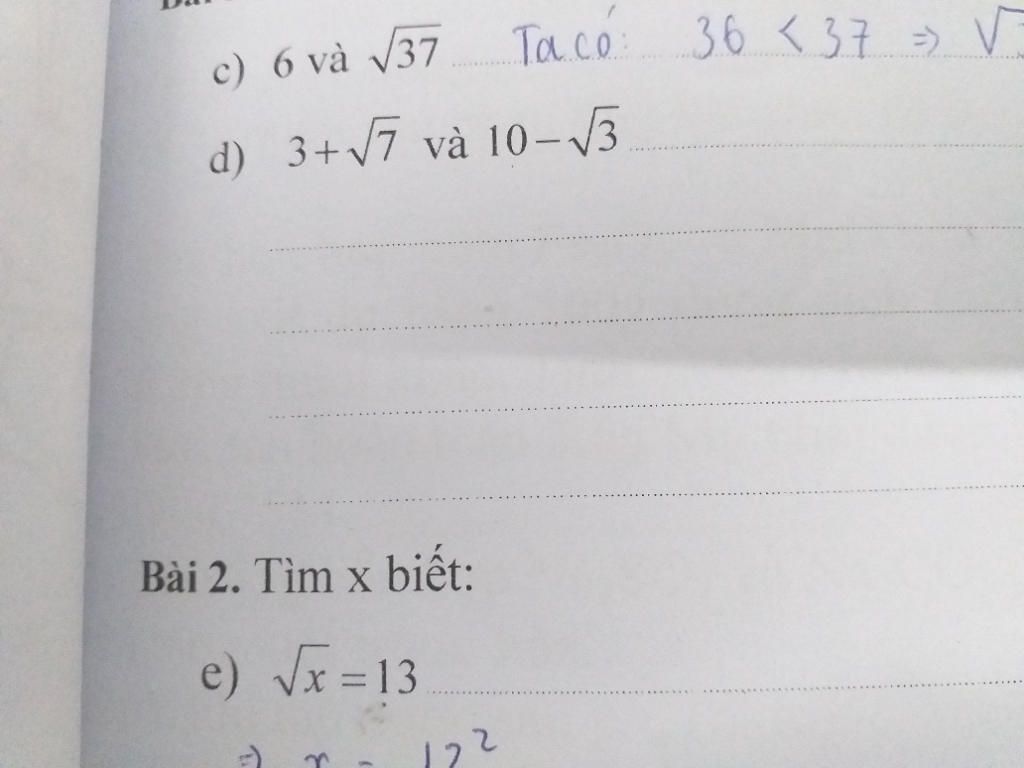 c) 6 và √37 Ta có: 36 < 37 ⇒ √
d) 3+√7 và 10−√3
Bài 2. Tìm x biết:
e) √x = 13
⇒ x = 13²